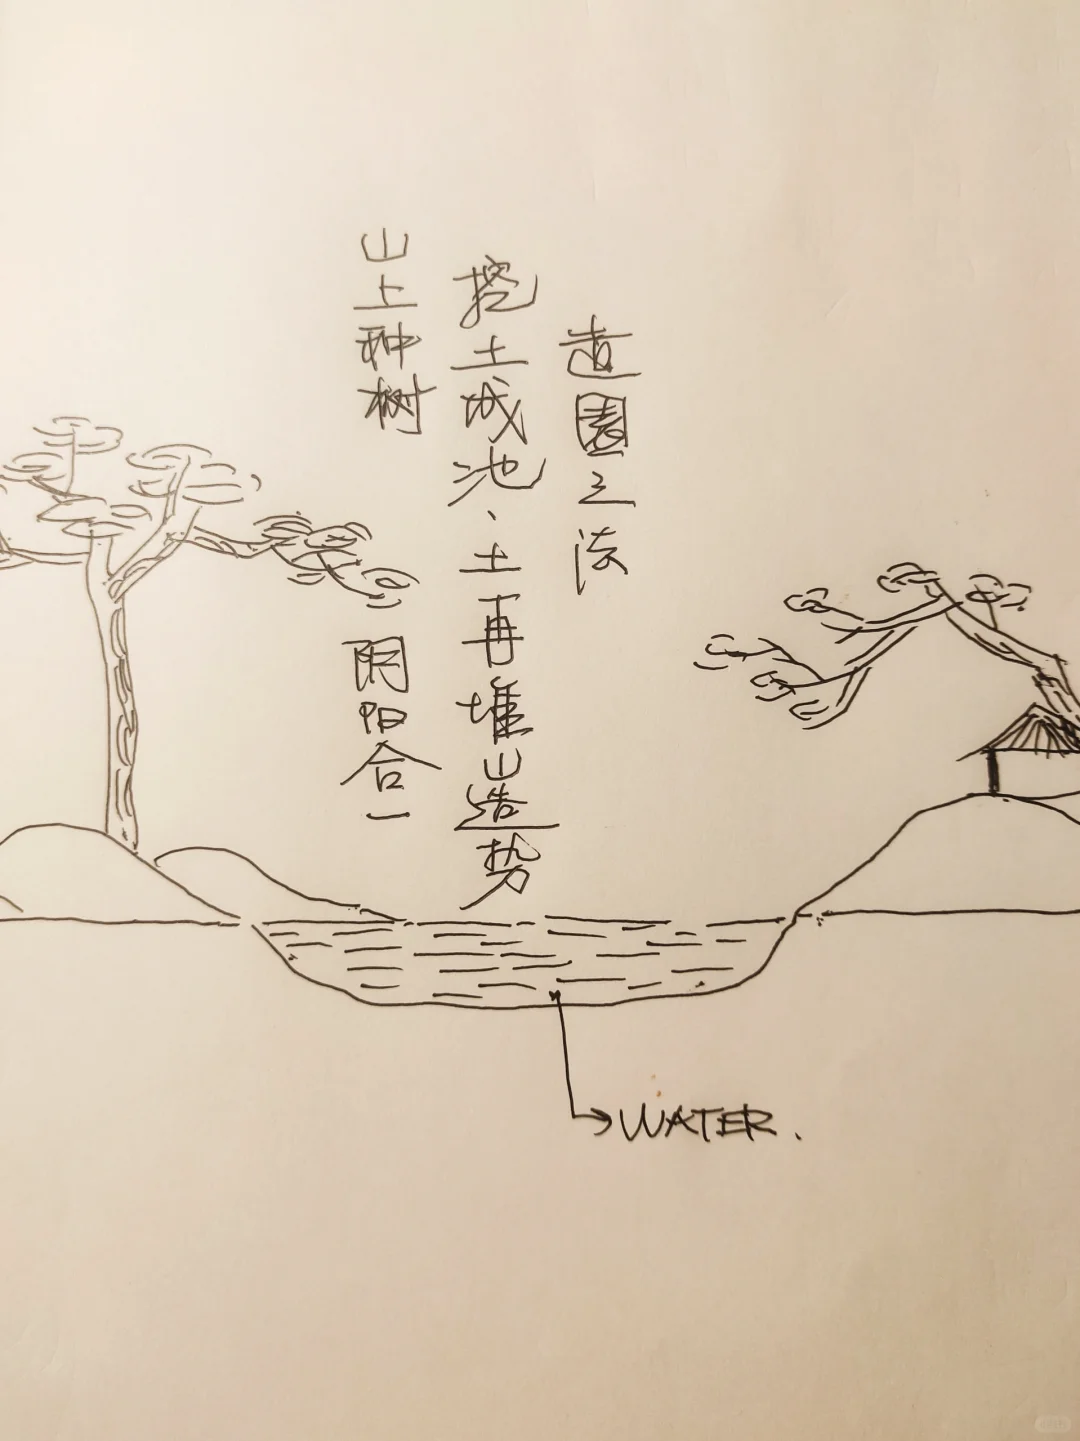 造園之法
挖土成池、土再堆山造势
山上种树 阴阳合一
WATER.